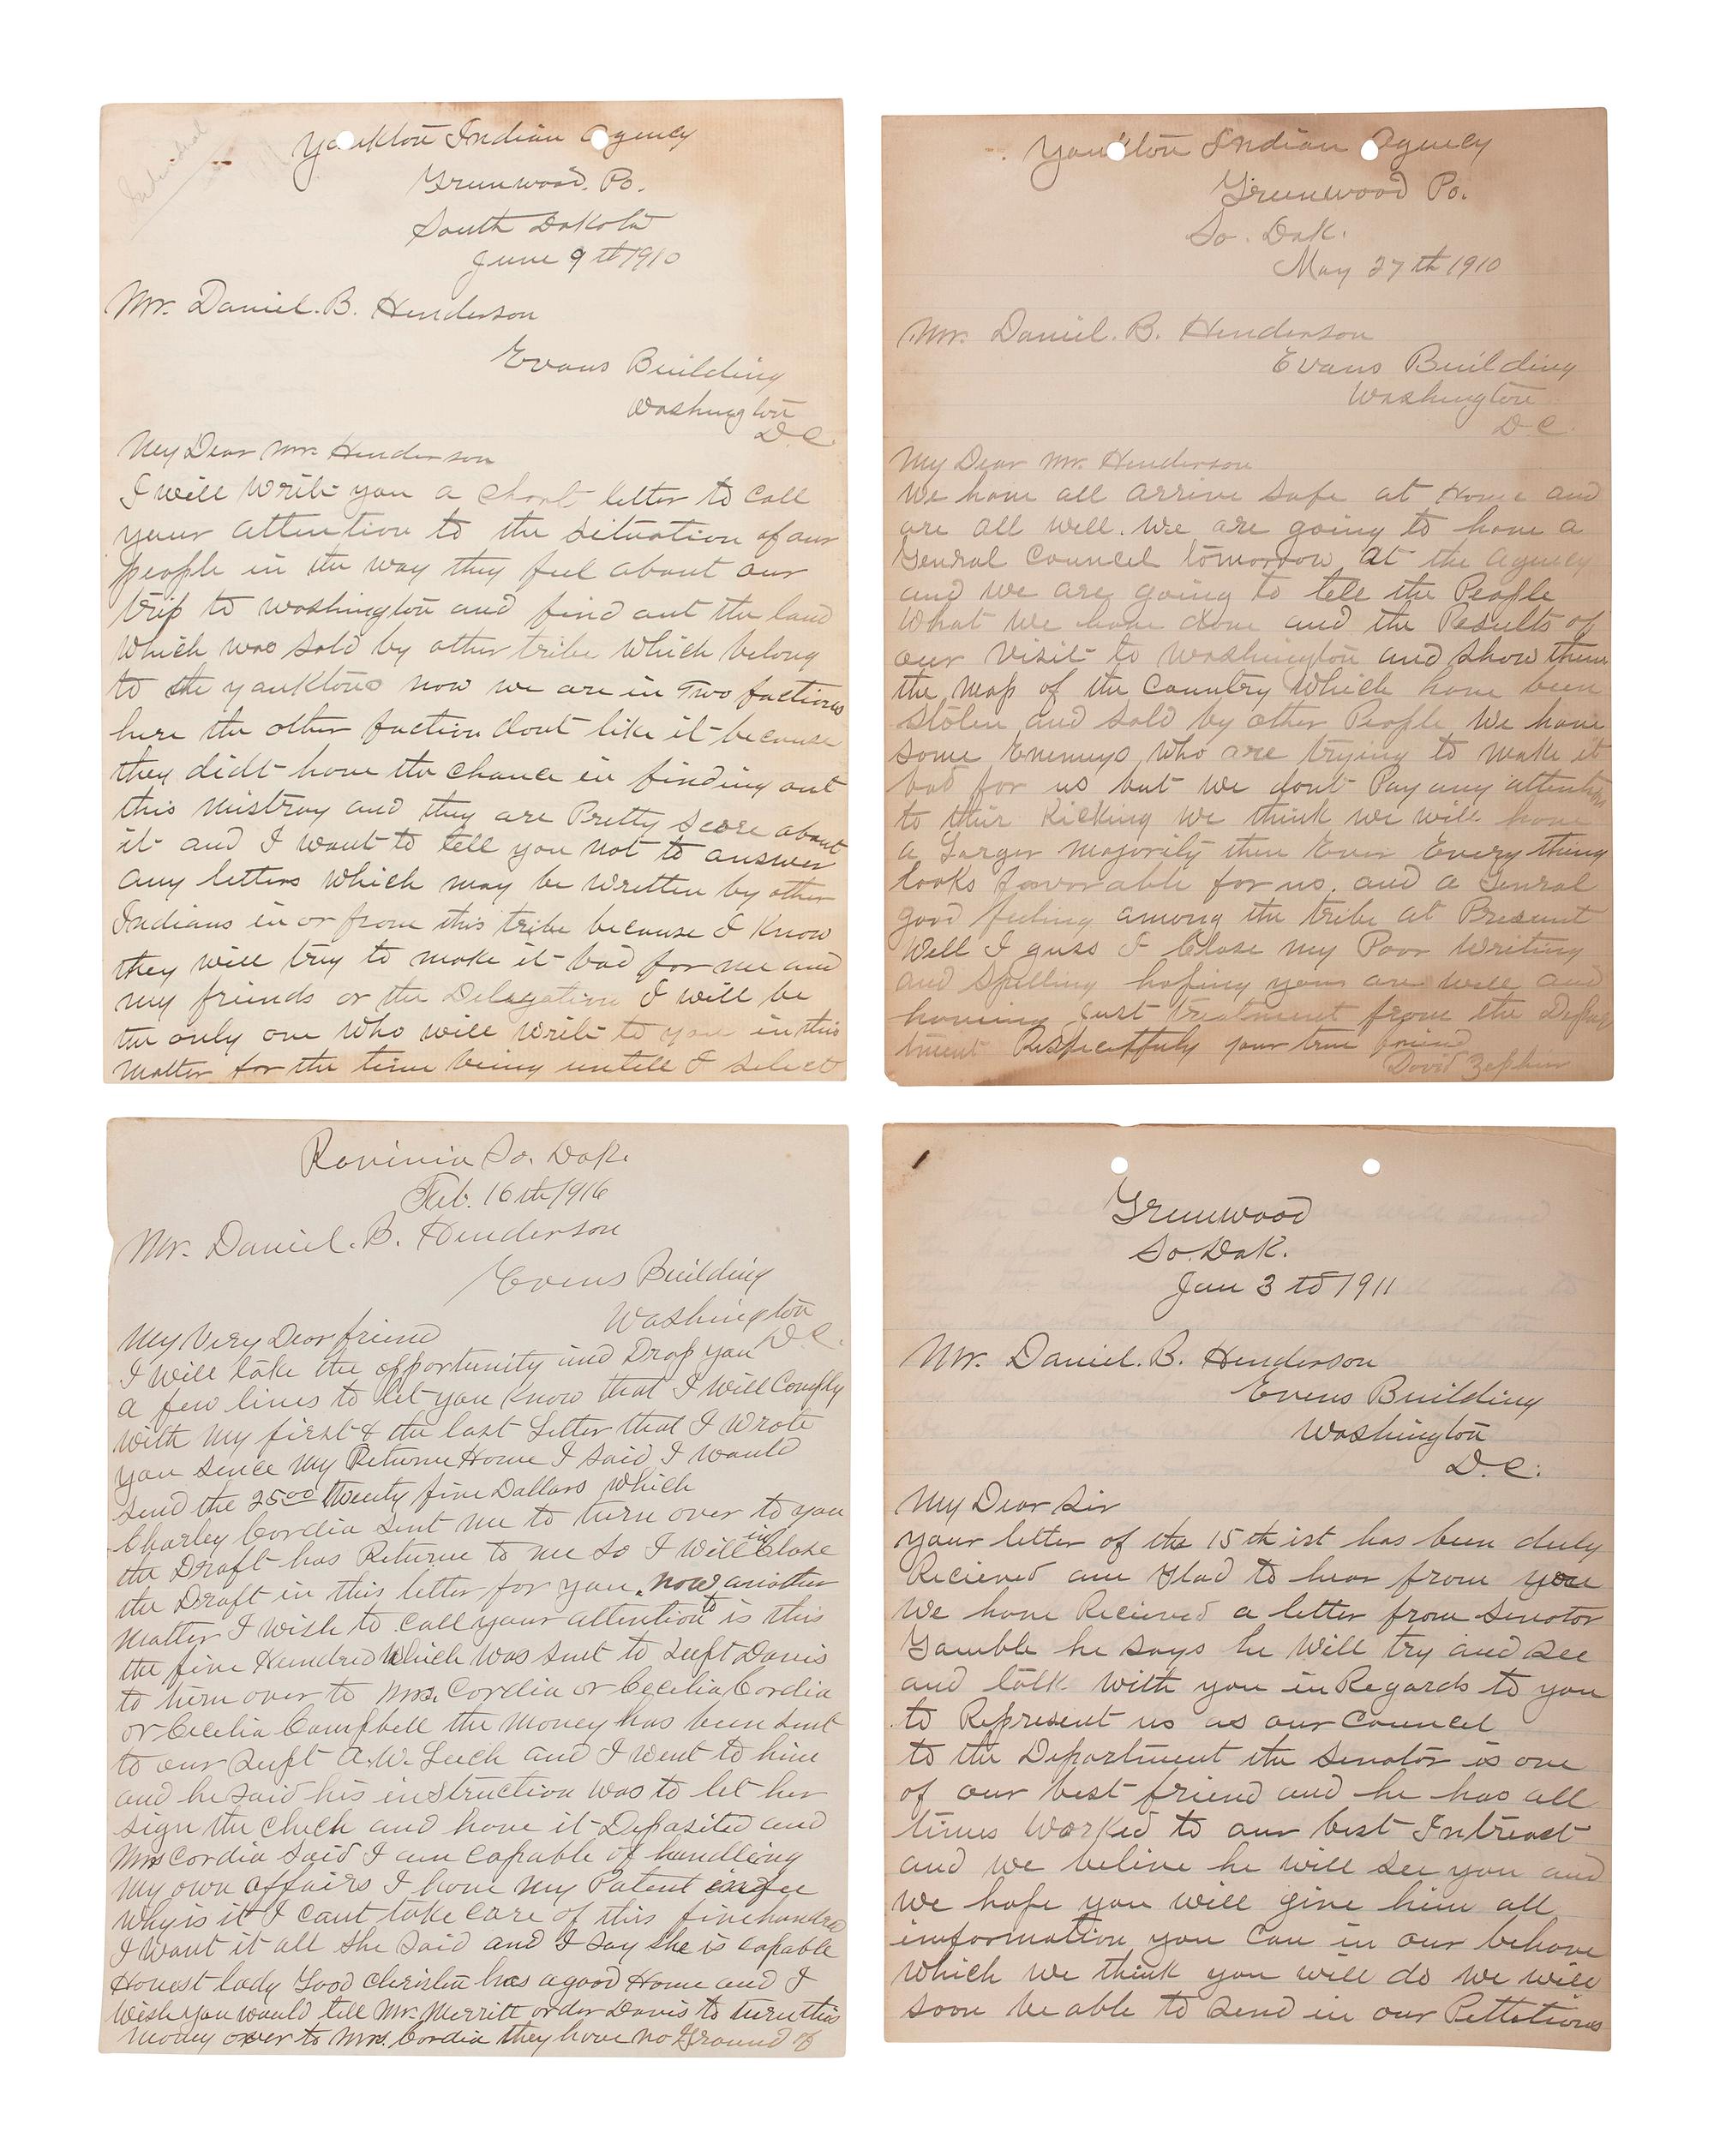 Yankton Indian Agency
Greenwood. Po.
South Dakota
June 9th 1910
Mr. Daniel. B. Henderson
Evans Building
Washington
D.C.
My Dear Mr. Henderson
I will write you a short letter to call
your attention to the situation of our
people in the way they feel about our
trip to washington and find out the land
which was sold by other tribe which belong
to the yanktons now we are in Two factions
here the other faction dont like it because
they didt have the chance in finding out
this mistray and they are Pretty score about
it and I want to tell you not to answer
any letters which may be written by other
Indians in or from this tribe because I know
they will try to make it bad for me and
my friends or the Delegation I will be
the only one who will write to you in this
matter for the time being untill I select
Yankton Indian Agency
Greenwood Po.
So. Dak.
May 27th 1910
Mr. Daniel. B. Henderson
Evans Building
Washington
D.C.
My Dear Mr. Henderson
We have all arrive safe at Home and
are all well. We are going to have a
General Council tomorrow at the agency
and we are going to tell the People
What we have done and the Results of
our visit to washington and show them
the map of the Country which have been
stolen and sold by other People We have
some Enemeys who are trying to make it
bad for us but we dont Pay any attention
to their Kicking we think we will have
a Larger majority then Ever Every thing
looks favorable for us. and a General
good feeling among the tribe at Present
Well I guss I Close my Poor Writing
and spelling hoping you are well and
having just treatment from the Depar
tment Respectfuly your true friend
David Zephier
Ravinia So. Dak.
Feb. 16th 1916
Mr. Daniel. B. Henderson
Evens Building
Washington
D.C.
My Very Dear friend
I will take the opportunity and Drop you
a few lines to let you know that I will Comply
with my first & the last Letter that I wrote
you since my Returne Home I said I would
send the 25.00 twenty five Dollars which
Charley Cordia sent me to turn over to you
the Draft has Returne to me so I will inclose
the Draft in this letter for you. now another
matter I wish to call your attention to is this
the five Hundred which was sent to Supt Davis
to turn over to Mrs. Cordia or Cecilia Cordia
or Cecilia Campbell the money has been sent
to our Supt A.W. Leech and I went to him
and he said his instruction was to let her
sign the check and have it Deposited and
Mrs Cordia said I am capable of handleing
my own affairs I have my Patent in fee
why is it I cant take care of this five hundred
I want it all she said and I say she is capable
Honest lady Good christin has a good Home and I
wish you would tell Mr. Merritt order Davis to turn this
money over to Mrs. Cordia they have no Ground of
Greenwood
So. Dak.
Jan 3 td 1911
Mr. Daniel. B. Henderson
Evens Building
Washington
D.C.
My Dear Sir
your letter of the 15th ist has been duly
Recieved am Glad to hear from you
We have Recieved a letter from Senator
Gamble he says he will try and see
and talk with you in Regards to you
to Represent us as our Council
to the Department the Senator is one
of our best friend and he has all
times worked to our best Intreast
and we belive he will see you and
we hope you will give him all
information you can in our behave
which we think you will do we will
soon be able to send in our Pettetions